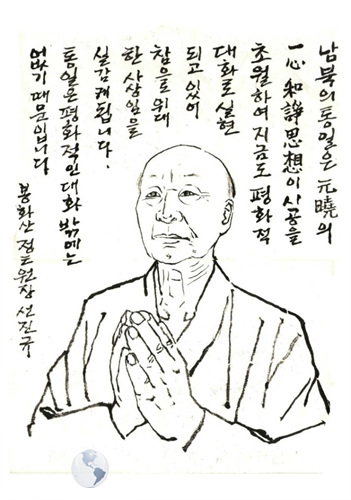 남북의 통일은 元曉의
一心 和諍思想이 시공을
초월하여 지금도 평화적
대화로 실현
되고 있어
참으로 위대
한 사상임을
실감케 됩니다.
통일은 평화적인 대화 밖에는
없기 때문입니다
봉화산 정토원장 선진규